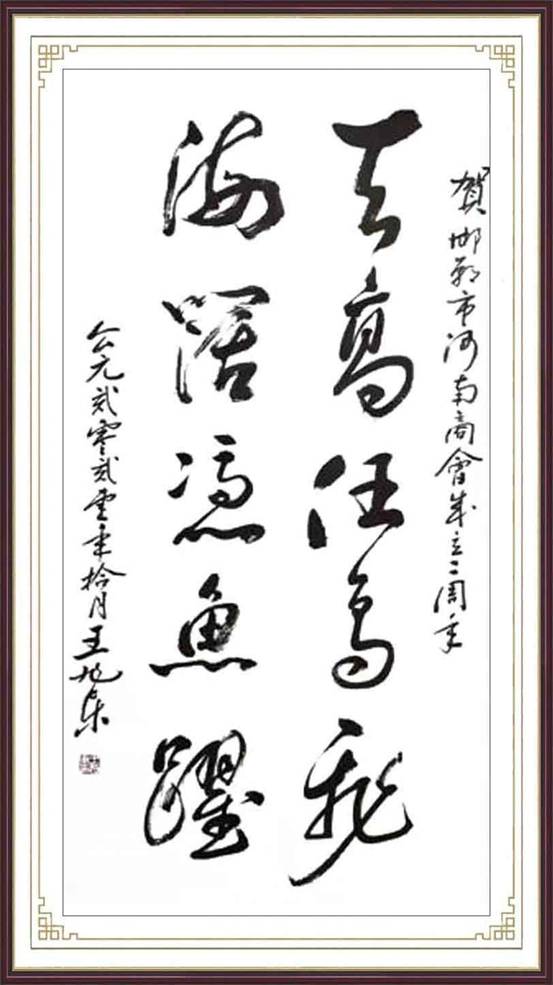 賀邯鄲市河南商會成立二周年
天高任鳥飛
海闊憑魚躍
公元贰零贰零年拾月王旭東